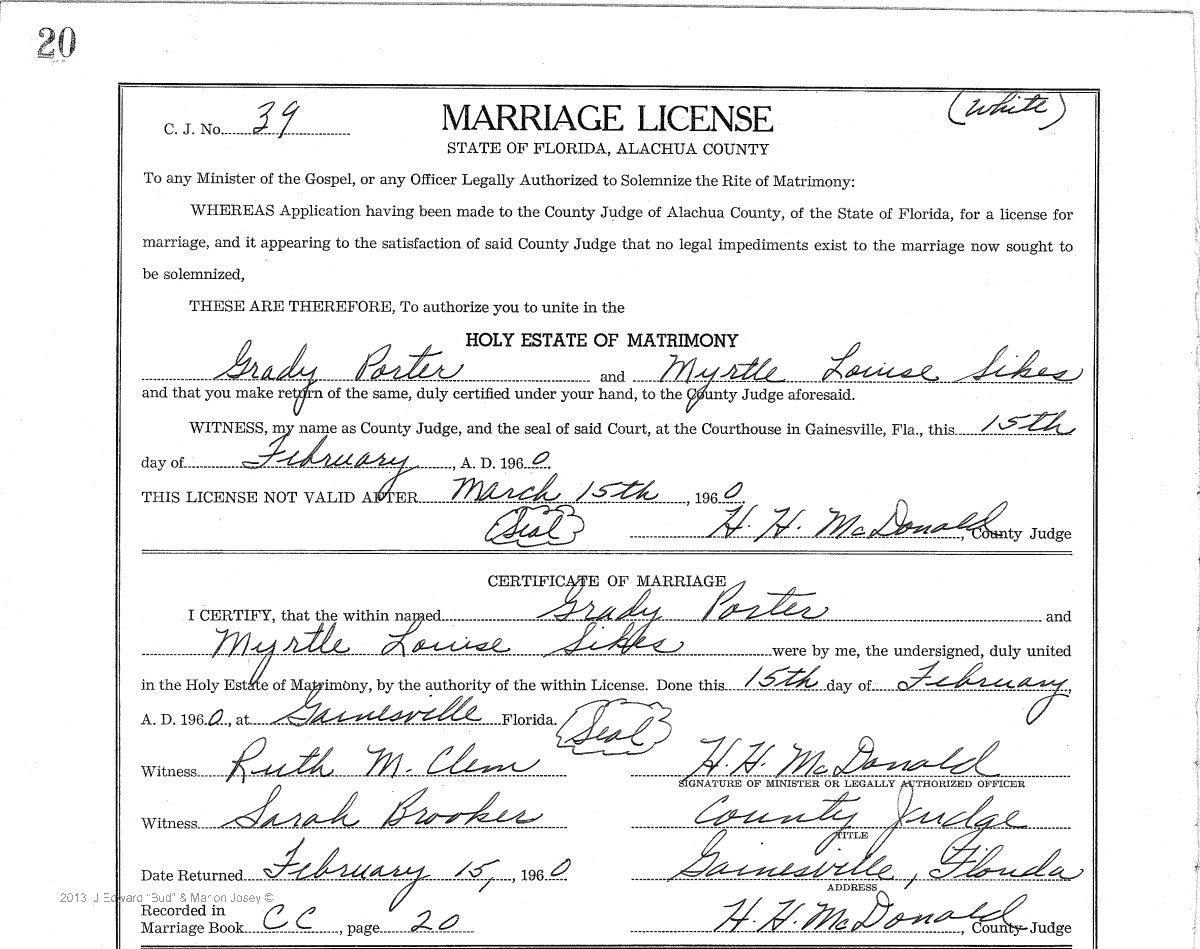 20
C. J. No. 39
MARRIAGE LICENSE
(White)
STATE OF FLORIDA, ALACHUA COUNTY
To any Minister of the Gospel, or any Officer Legally Authorized to Solemnize the Rite of Matrimony:
WHEREAS Application having been made to the County Judge of Alachua County, of the State of Florida, for a license for
marriage, and it appearing to the satisfaction of said County Judge that no legal impediments exist to the marriage now sought to
be solemnized,
THESE ARE THEREFORE, To authorize you to unite in the
HOLY ESTATE OF MATRIMONY
Grady Porter and Myrtle Louise Sikes
and that you make return of the same, duly certified under your hand, to the County Judge aforesaid.
WITNESS, my name as County Judge, and the seal of said Court, at the Courthouse in Gainesville, Fla., this 15th
day of February, A. D. 1960
THIS LICENSE NOT VALID AFTER March 15th, 1960
(Seal) H. H. McDonald, County Judge
CERTIFICATE OF MARRIAGE
I CERTIFY, that the within named Grady Porter and
Myrtle Louise Sikes were by me, the undersigned, duly united
in the Holy Estate of Matrimony, by the authority of the within License. Done this 15th day of February,
A. D. 1960, at Gainesville Florida. (Seal)
Witness Ruth M. Clem H. H. McDonald
SIGNATURE OF MINISTER OR LEGALLY AUTHORIZED OFFICER
Witness Sarah Brooker County Judge
TITLE
Date Returned February 15, , 1960 Gainesville, Florida
ADDRESS
2013 J Edward "Bud" & Marion Josey ©
Recorded in
Marriage Book CC, page 20 H. H. McDonald, County Judge